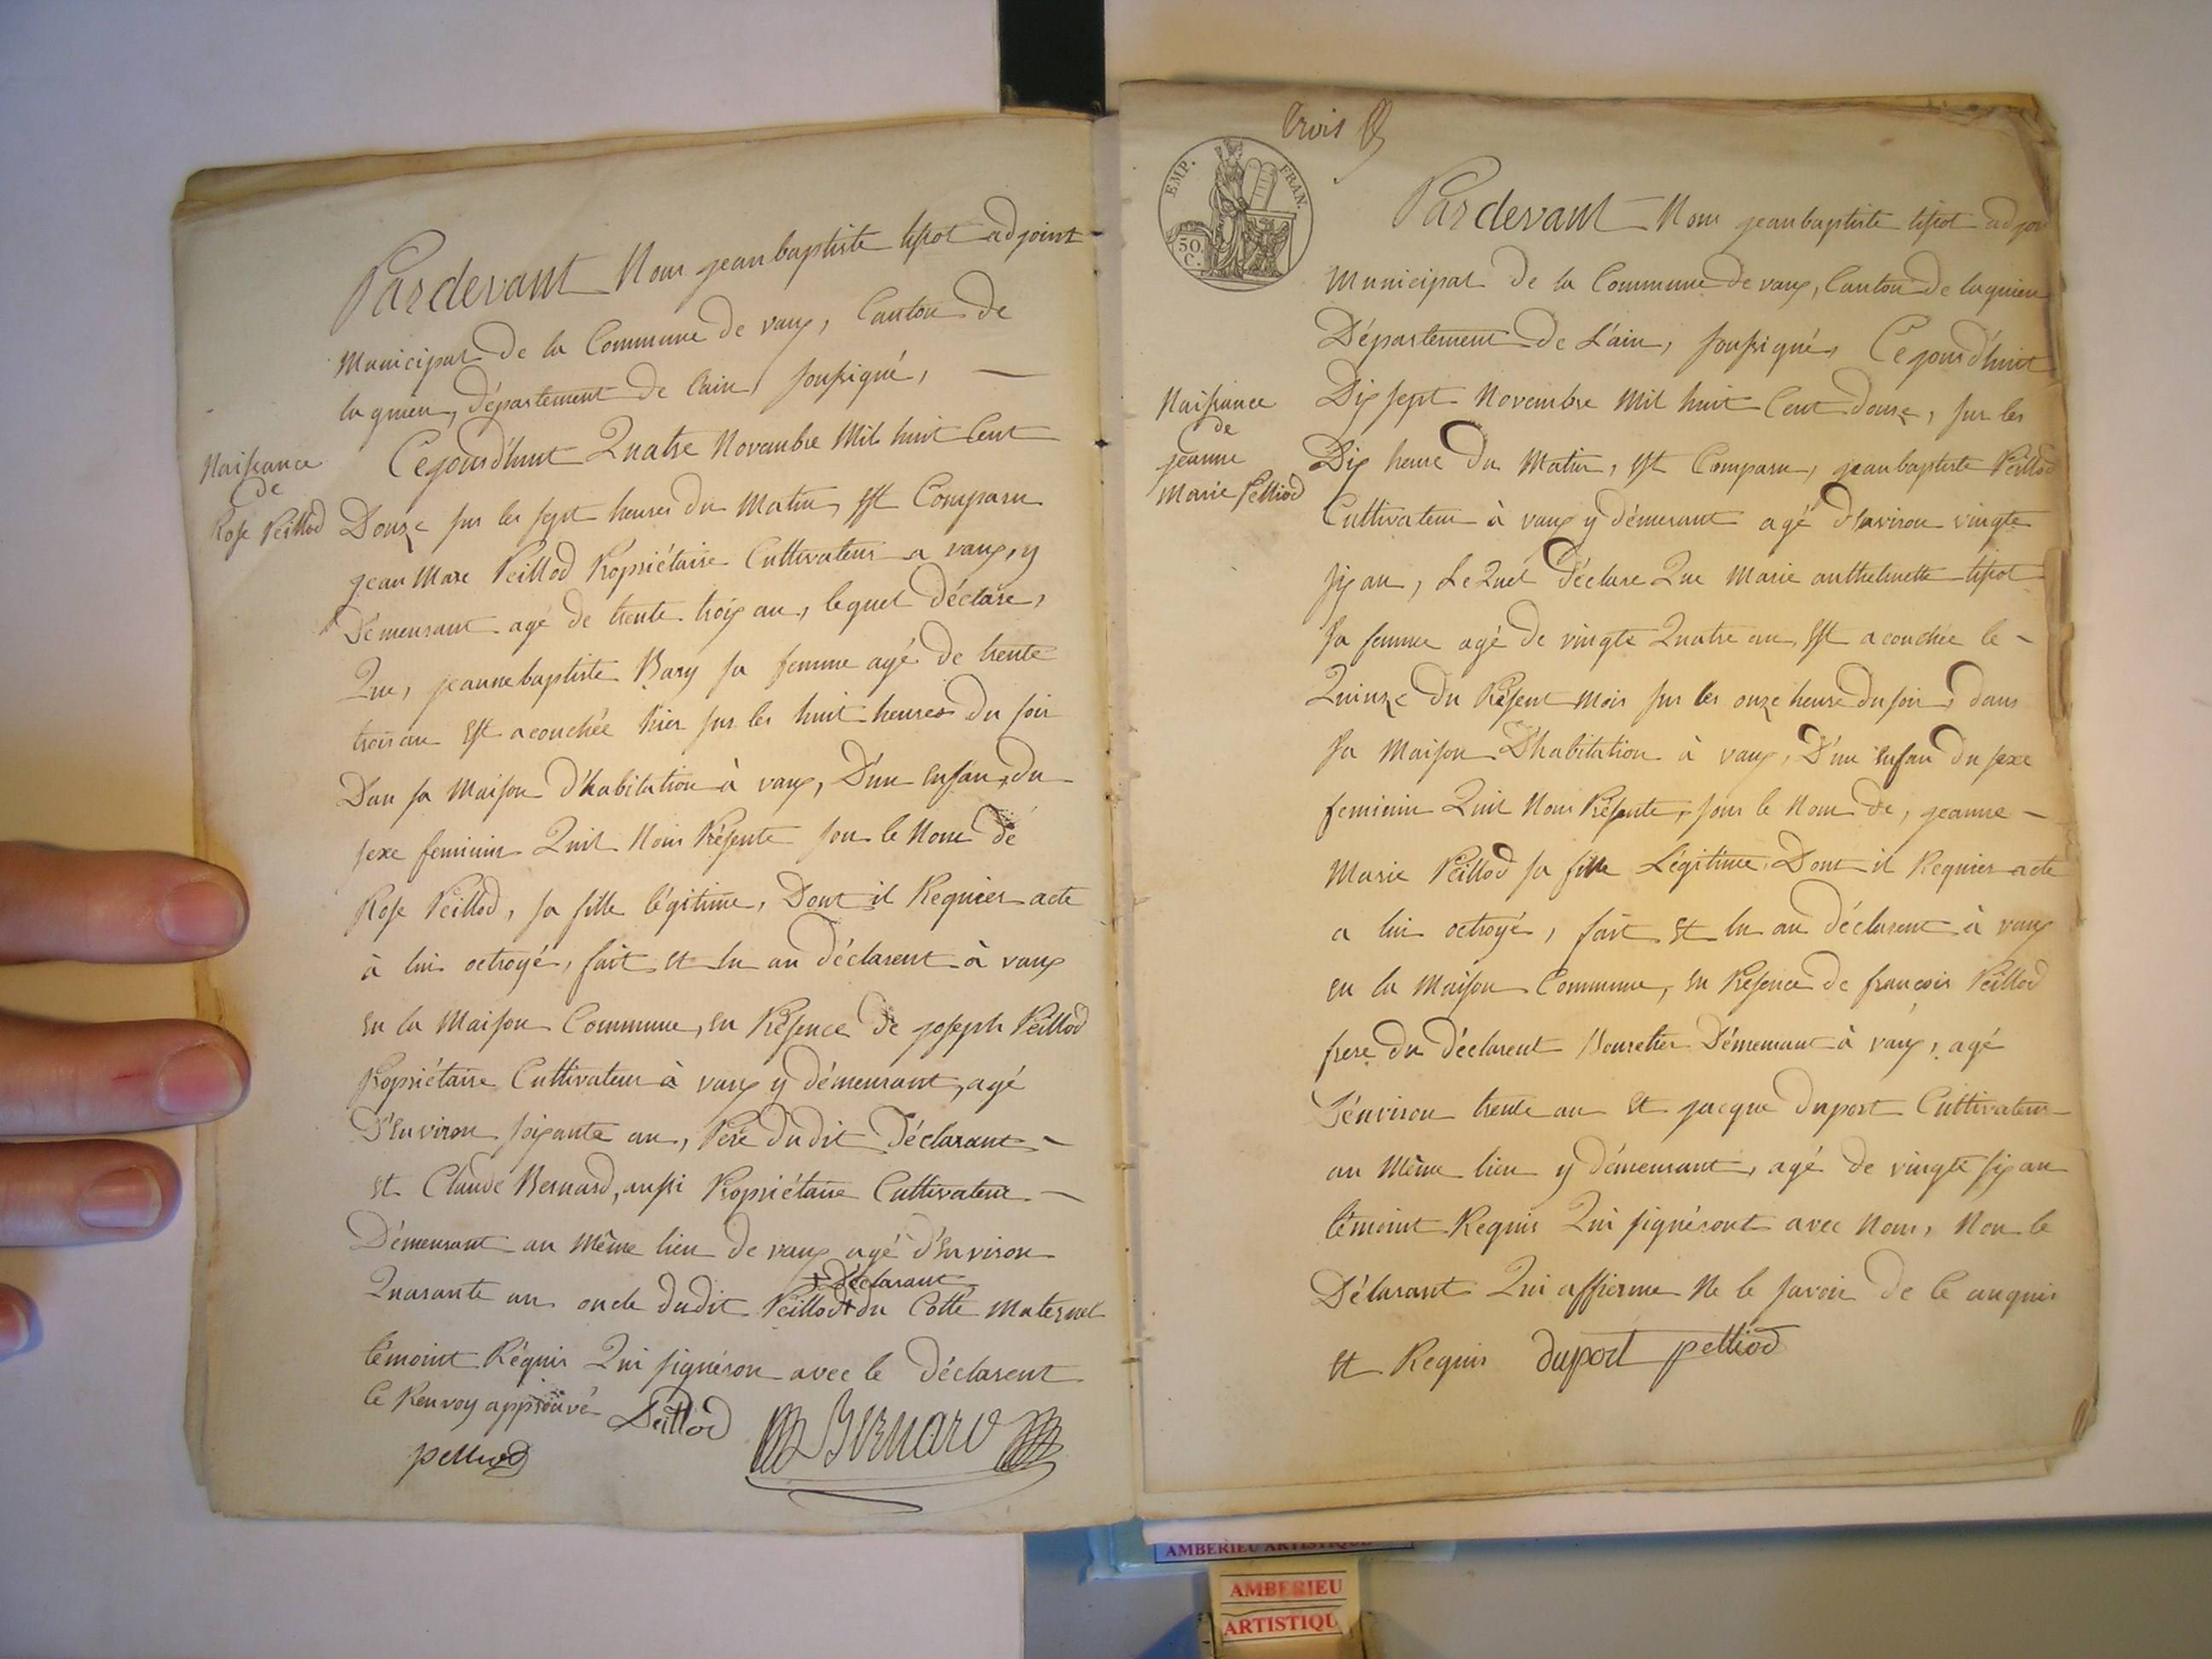 Pardevant Nous jean baptiste tissot adjoint
Municipal de la Commune de vaux, Canton de
lagnieu, département de lain, soussigné,
Cejourdhuit Quatre Novembre Mil huit Cent
Naissance
de
Rose Peillod
Douze sur les sept heures du Matin, Est Comparu
jean Marc Peillod Propriétaire Cultivateur a vaux, y
Démeurant agé de trente troix an, lequel déclare,
Que, jeanne baptiste Bary sa femme agé de trente
trois an Est acouchée hier sur les huit heures du soir
Dan sa Maison d'habitation à vaux, D'un Enfan du
sexe feminin Quil Nous Présente sou le Nom de
Rose Peillod, sa fille légitime, Dont il Requier acte
à lui octroyé, fait et lu au déclarent à vaux
En la Maison Commune, En Présence de joseph Peillod
Propriétaire Cultivateur à vaux y démeurant, agé
D'Environ soixante an, Pere dudit Déclarant
et Claude Bernard, aussi Propriétaire Cultivateur
Démeurant au Même lieu de vaux agé d'Environ
+ Déclarant
Quarante an oncle dudit Peillod + du Cotté Maternel
témoint Réquis Qui signéron avec le Déclarent
le Renvoy approuvé Peillod BERNARD
pelliod
trois
EMP. FRAN.
50 C.
Pardevant Nous jean baptiste tissot adjoi
Municipal de la Commune de vaux, Canton de lagnieu
Département de L'ain, soussigné, Cejourd'huit
Naissance
de
jeanne
Marie Pelliod
Dix sept Novembre Mil huit Cent douze, sur les
Dix heure du Matin, Est Comparu, jean baptiste Peillod
Cultivateur à vaux y démeurant agé d'Environ vingte
six an, Le Quel Déclare Que Marie anthelmette tissot
sa femme agé de vingte Quatre an, Est acouchée le
Quinze du Présent mois sur les onze heure du soir, dans
sa Maison D'habitation à vaux, D'un Enfan du sexe
feminin Quil Nous Présente, sous le Nom de, jeanne
Marie Peillod sa fille Légitime Dont il Requier acte
a lui octroyé, fait et lu au déclarent à vaux
en la Maison Commune, En Présence de francois Peillod
frere du déclarent Bourelier Démeurant à vaux, agé
D'énviron trente an et jacque duport Cultivateur
au Même lieu y démeurant, agé de vingte six an
témoint Requis Qui signéront avec Nous, Non le
Déclarant Qui affierme Ne le savoir de Ce anquis
et Requis duport pelliod
AMBERIEU ARTISTIQUE
AMBERIEU
ARTISTIQU